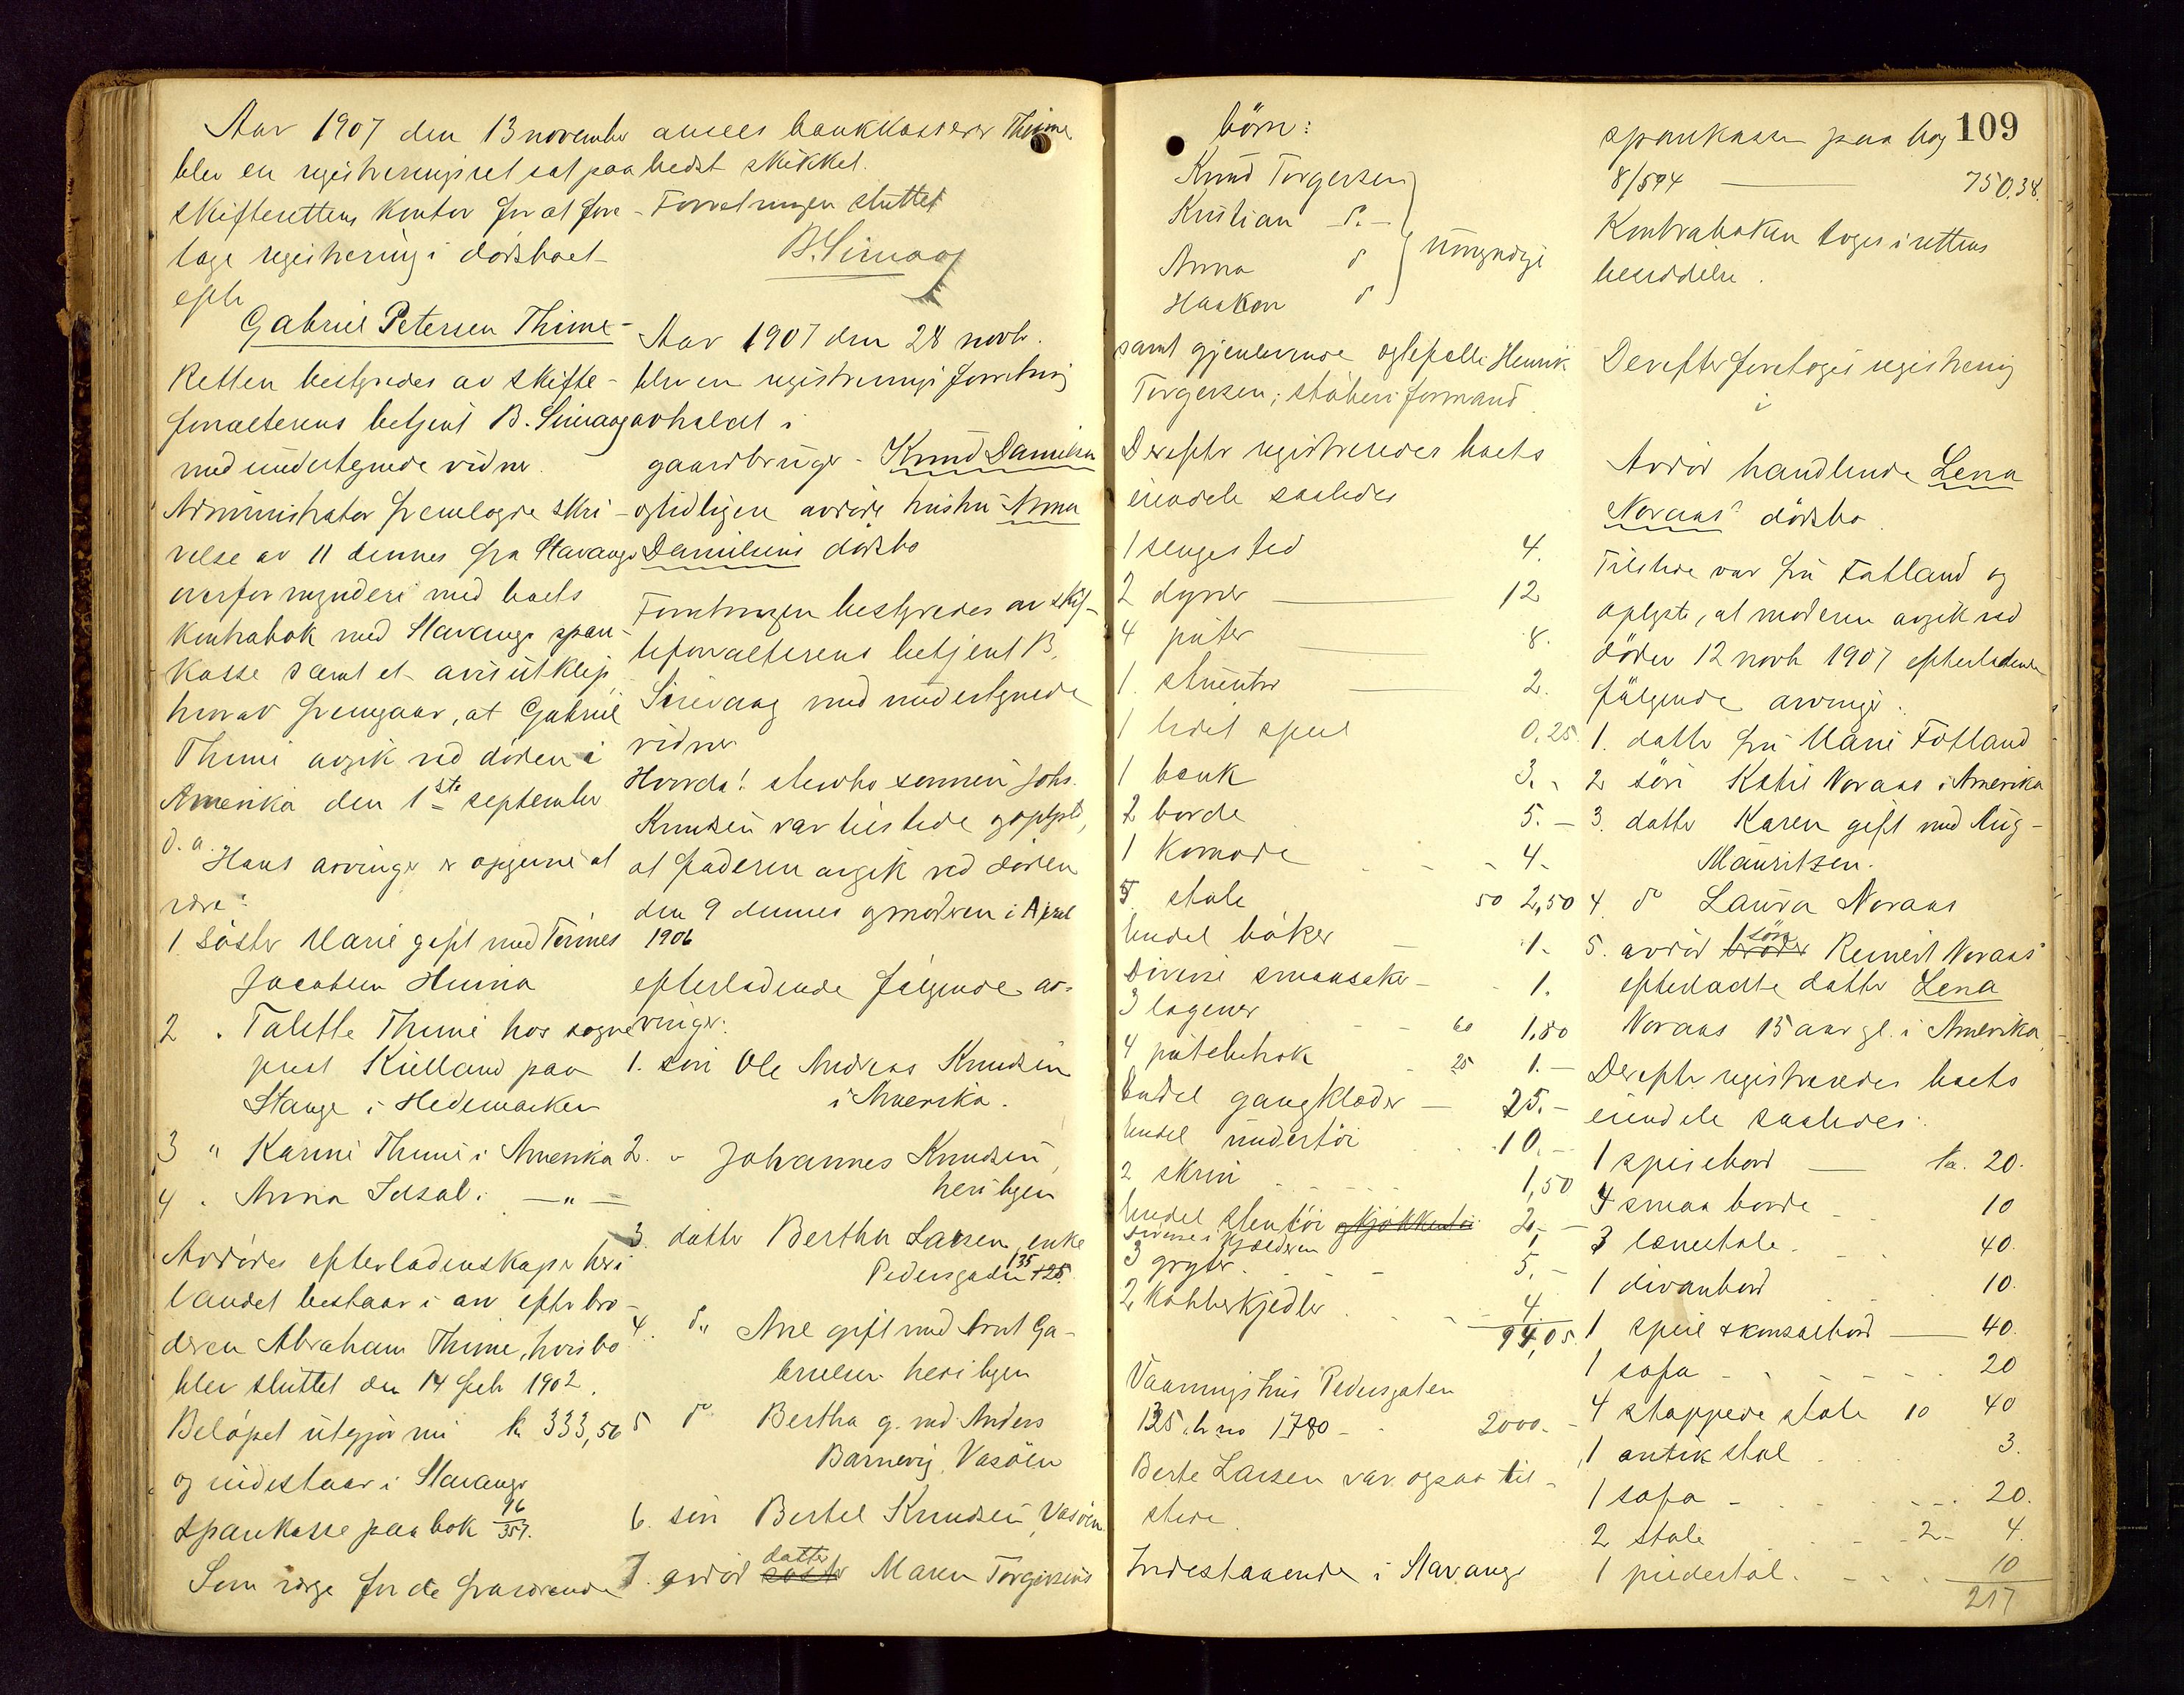 Aar 1907 den 13 november
blev en registreringsret sat paa
skifterettens kontor for at fore-
tage registrering i dødsboet
efter
Gabriel Petersen Thime
Retten bestyredes av skifte-
forvalterens betjent B. Sirevaag
med undertegnede vidner.
Administrator fremlagde skri-
velse av 11 dennes fra Stavanger
overformynderi med boets
kontrabok med Stavanger spare-
kasse samt et avisutklip,
hvorav fremgaar, at Gabriel
Thime avgik ved døden i
Amerika den 1ste september
d. a.
Hans arvinger er opgivne at
være:
1 Søster Marie gift med Tønnes
Jacobsen Hunna
2 " Talette Thime hos sogne-
prest Kielland paa
Stange i Hedemarken
3 " Karine Thime i Amerika
4 " Anna Idsal i — " —
Avdødes efterladenskaper her i
landet bestaar i arv efter bro-
deren Abraham Thime, hvis bo
blev sluttet den 14 feb 1902.
Beløpet utgjør nu kr 333,56
og indestaar i Stavanger
sparekasse paa bok 96/357.
Som verge for de fraværende
ansees bankkasserer Thime
bedst skikket.
Forretningen sluttet
B. Sirevaag
Aar 1907 den 28 novbr.
blev en registreringsforretning
avholdt i
gaardbruger Knud Danielsen
og tidligere avdøde hustru Anna
Danielsens dødsbo
Forretningen bestyredes av skif-
teforvalterens betjent B.
Sirevaag med undertegnede
vidner
Hvorda! stervbo sønnen Johs.
Knudsen var tilstede og oplyste,
at faderen avgik ved døden
den 9 dennes og moderen i April
1906
efterladende følgende ar-
vinger:
1. søn Ole Andreas Knudsen
i Amerika.
2. " Johannes Knudsen,
her i byen
3. datter Bertha Larsen, enke
Pedersgaden 135 125.
4. do Ane gift med Arnt Ga-
brielsen her i byen
5 do Bertha g. med Anders
Barnevig, Vasøen
6. søn Bertel Knudsen, Vasøen
7. avdød søster datter Maren Torgersens
børn:
Knud Torgersen
Kristian do
Anna do
Haakon do
umyndige
samt gjenlevende egtefelle Henrik
Torgersen, støberiformand
Derefter registreredes boets
eiendele saaledes
1 sengested 4.
2 dyner 12
4 puter 8.
1. struntur 2.
1 lidet speil 0,25.
1 benk 3.
2 borde 5.—
1 komode 4.
5 stole 50 2,50
Endel bøker 1.
Diverse smaasaker 1.
3 lagener 60 1,80
4 putetrek 25 1.—
Endel gangklæder 25.—
Endel undertøi 10.—
2 skrin 1,50
Endel stentøi og kjøkkentøi 2.—
Diverse i kjælderen 1
3 gryter 5.—
2 kobberkjedler 4.
94,05.
Vaaningshus Pedersgaten
135, br no 1780 2000.—
Berte Larsen var ogsaa til-
stede.
Indestaaende i Stavanger
109
sparekasse paa bog
8/594 750.38.
Kontraboken toges i rettens
besiddelse.
Derefter foretoges registrering
i
Avdød handlende Lena
Noraas' dødsbo.
Tilstede var fru Fotland og
oplyste, at moderen avgik ved
døden 12 novbr 1907 efterladende
følgende arvinger.
1. datter fru Marie Fotland
2 søn Ketil Noraas i Amerika
3. datter Karen gift med Aug-
Mauritzen.
4. do Laura Noraas
5. avdød broder søn Reinert Noraas'
efterladte datter Lena
Noraas 15 aar gl. i Amerika.
Derefter registreredes boets
eiendele saaledes:
1 spisebord kr. 20.
4 smaa borde 10
3 lænestole 40.
1 divanbord 10.
1 speil & konsolbord 40.
1 sofa 20
4 stoppede stole 10 40
1 antik stol 3.
1 sofa 20.
2 stole 2— 4.
1 piedestal 10
217